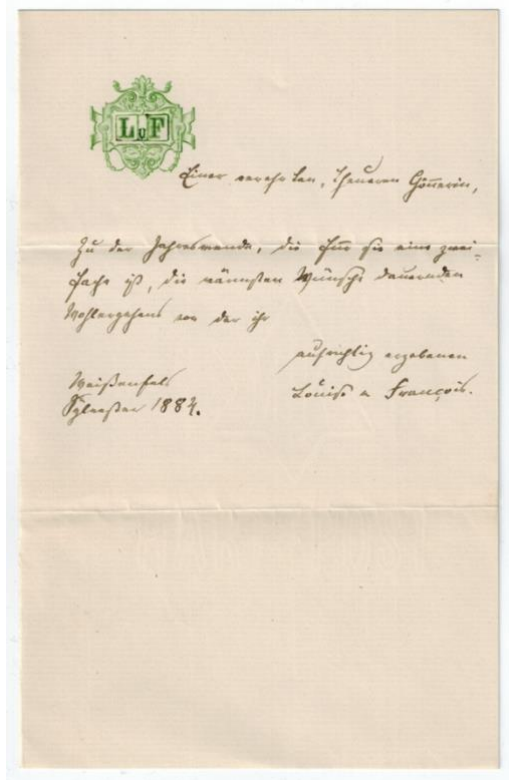 LvF
Einer verehrten, theueren Gönnerin,
Zu der Jahreswende, die für sie eine zwei-
fache ist, die wärmsten Wünsche dauernden
Wohlergehens von der ihr
aufrichtig ergebenen
Louise v François.
Weißenfels
Sylvester 1884.